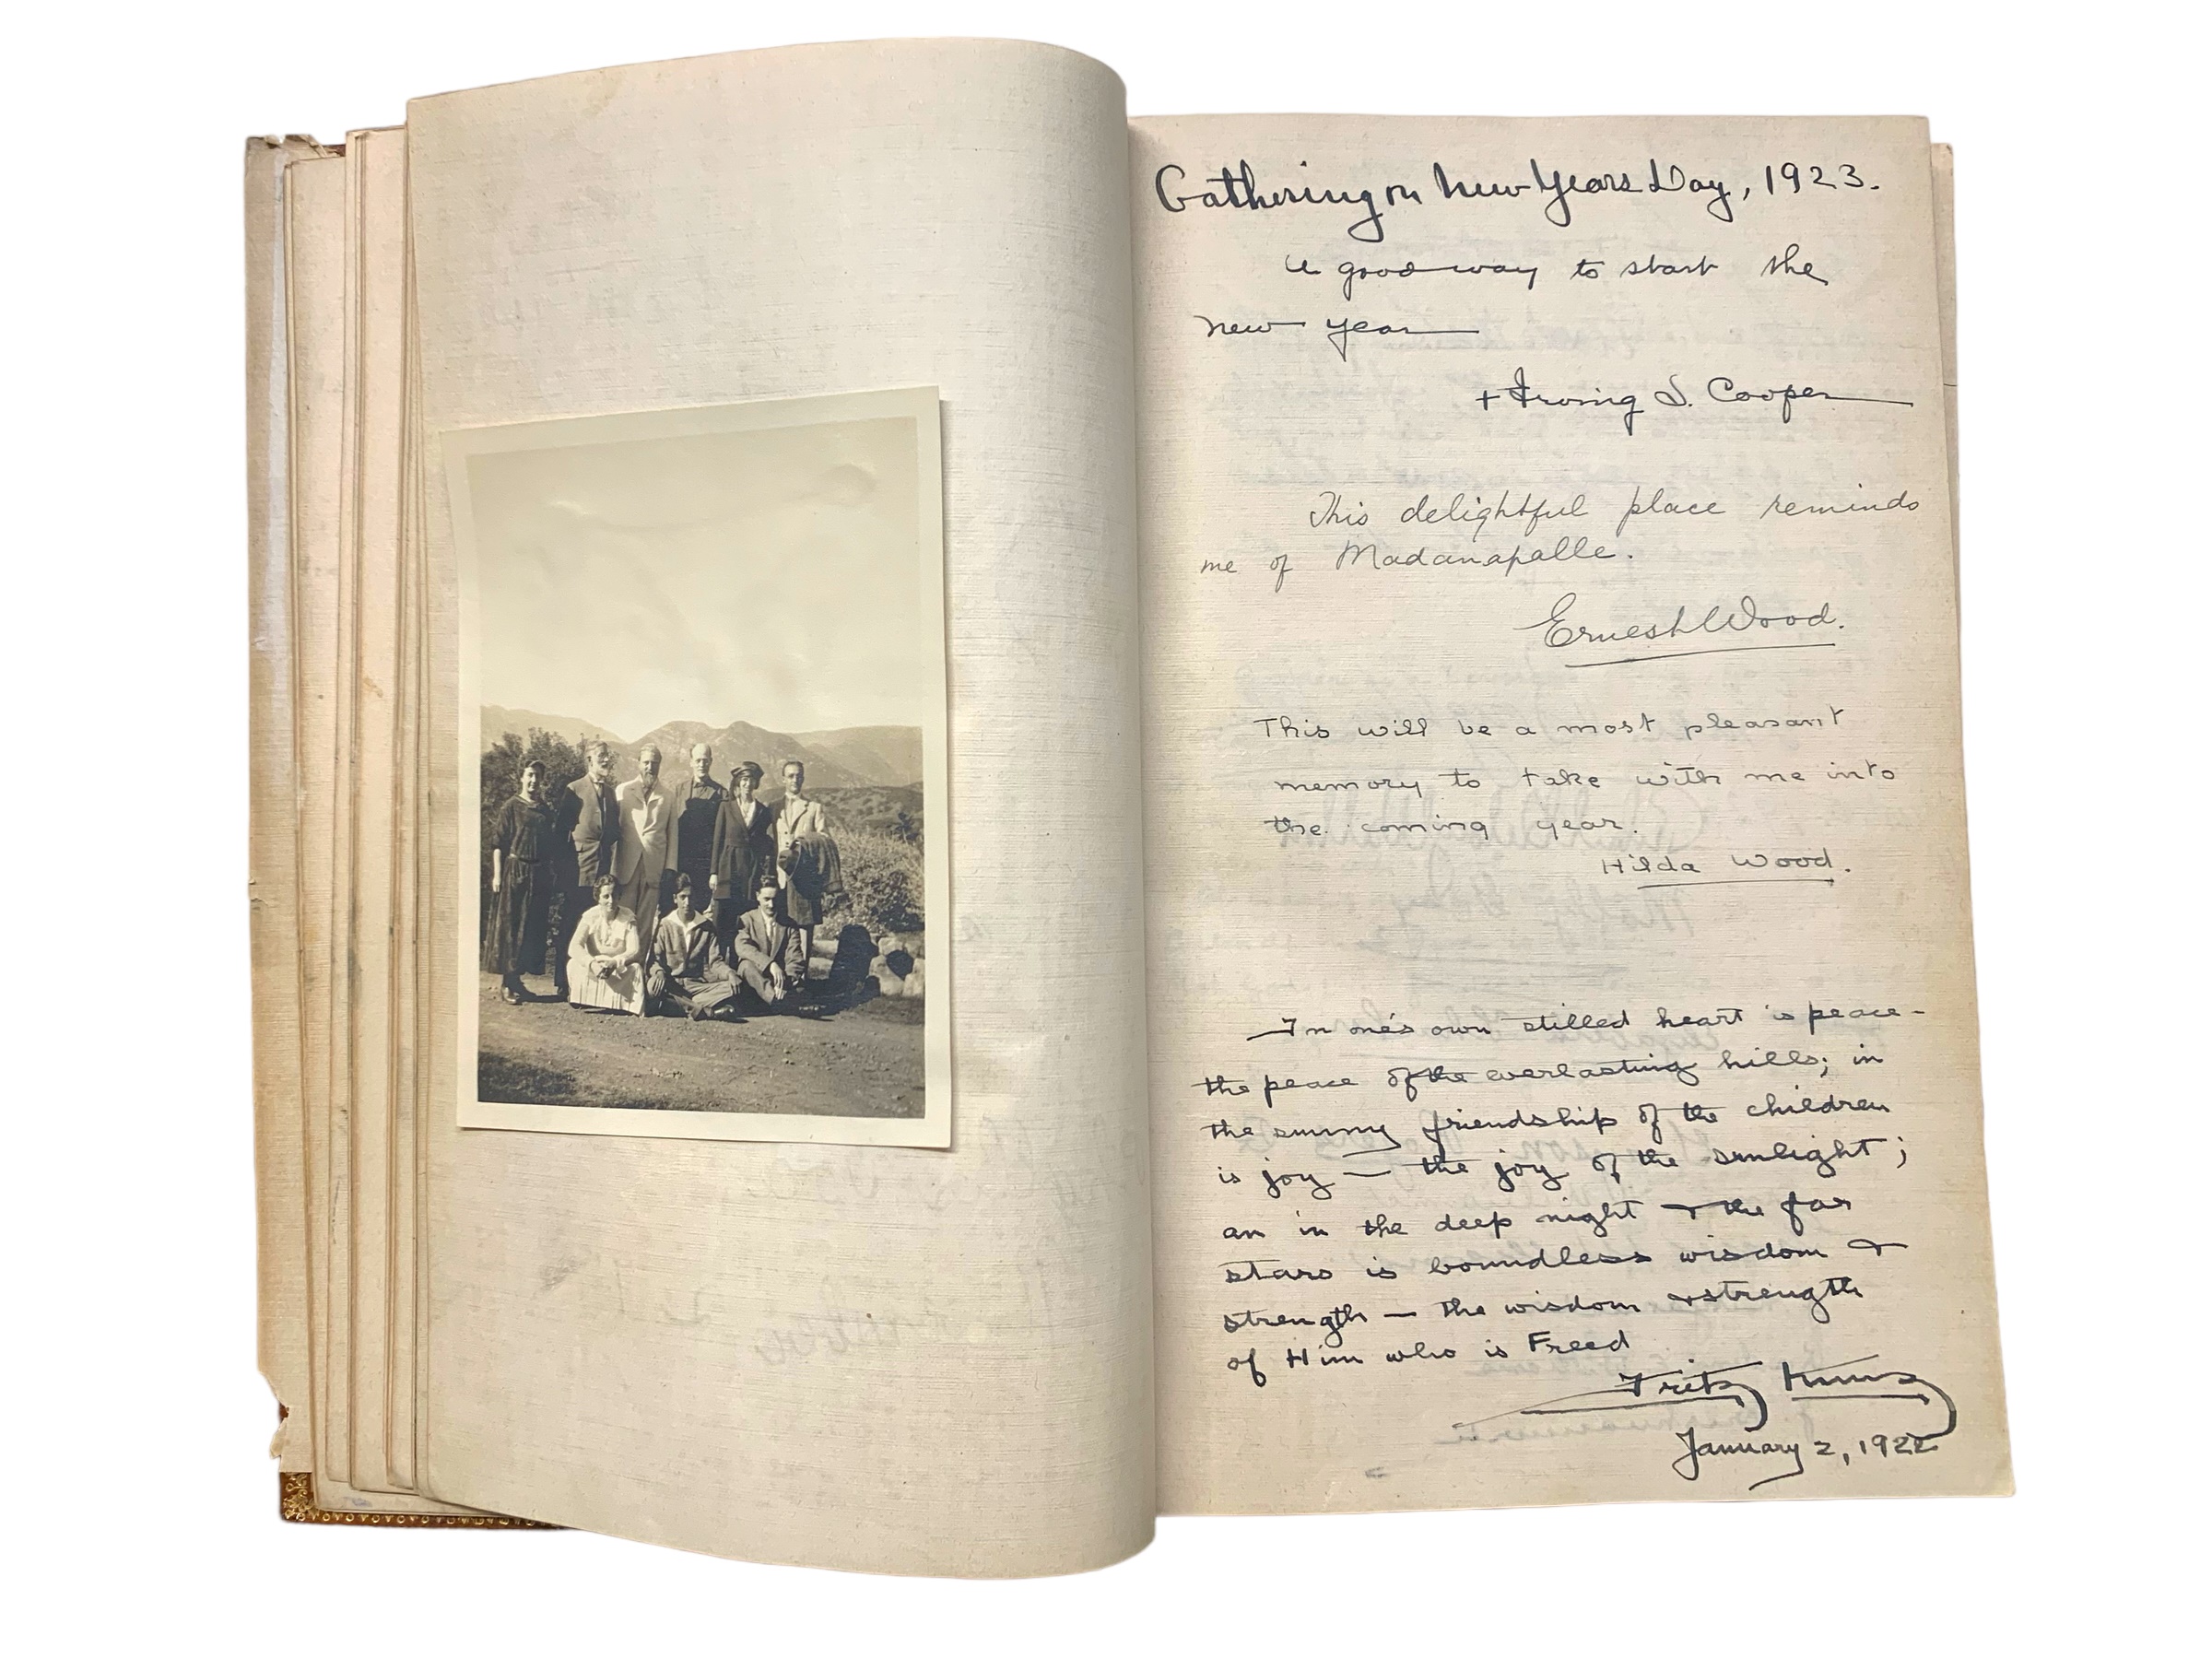 Gathering on New Years Day, 1923.
A good way to start the
new year
+ Irving S. Cooper
This delightful place reminds
me of Madanapalle.
Ernest Wood.
This will be a most pleasant
memory to take with me into
the coming year.
Hilda Wood.
In one's own stilled heart is peace -
the peace of the everlasting hills; in
the sunny friendship of the children
is joy — the joy of the sunlight;
an in the deep night & the far
stars is boundless wisdom &
strength — the wisdom & strength
of Him who is Freed
Fritz Kunz
January 2, 1922